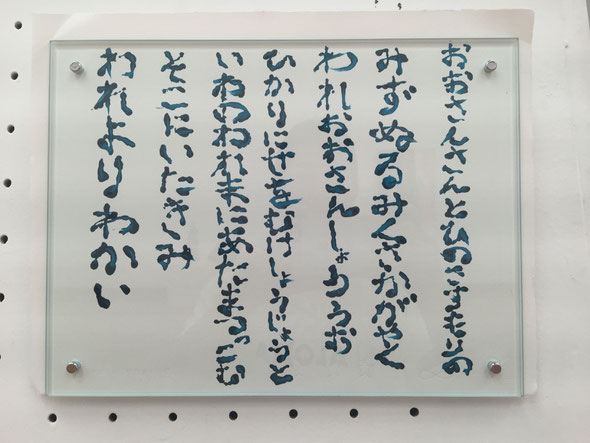 おおさんさんとひのさすもとの
みずぬるみくさかがやく
われおおさんしょううお
ひかりにせをむけしょうじょうと
いわのわれまにあたまつっこむ
そこにいたきみ
われよりわかい